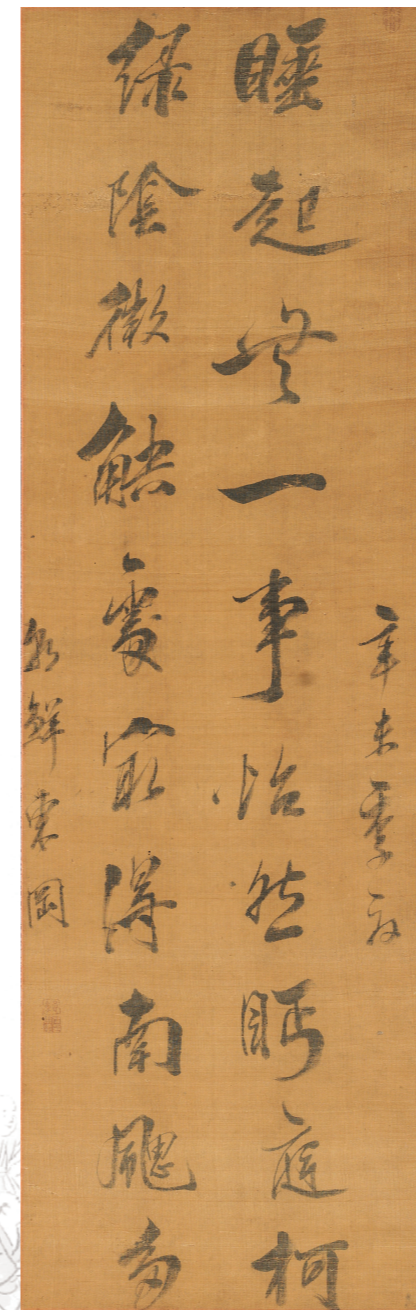 辛未季夏
睡起無一事怡然眄庭柯
綠陰微缺處最得南颸多
朝鮮東岡